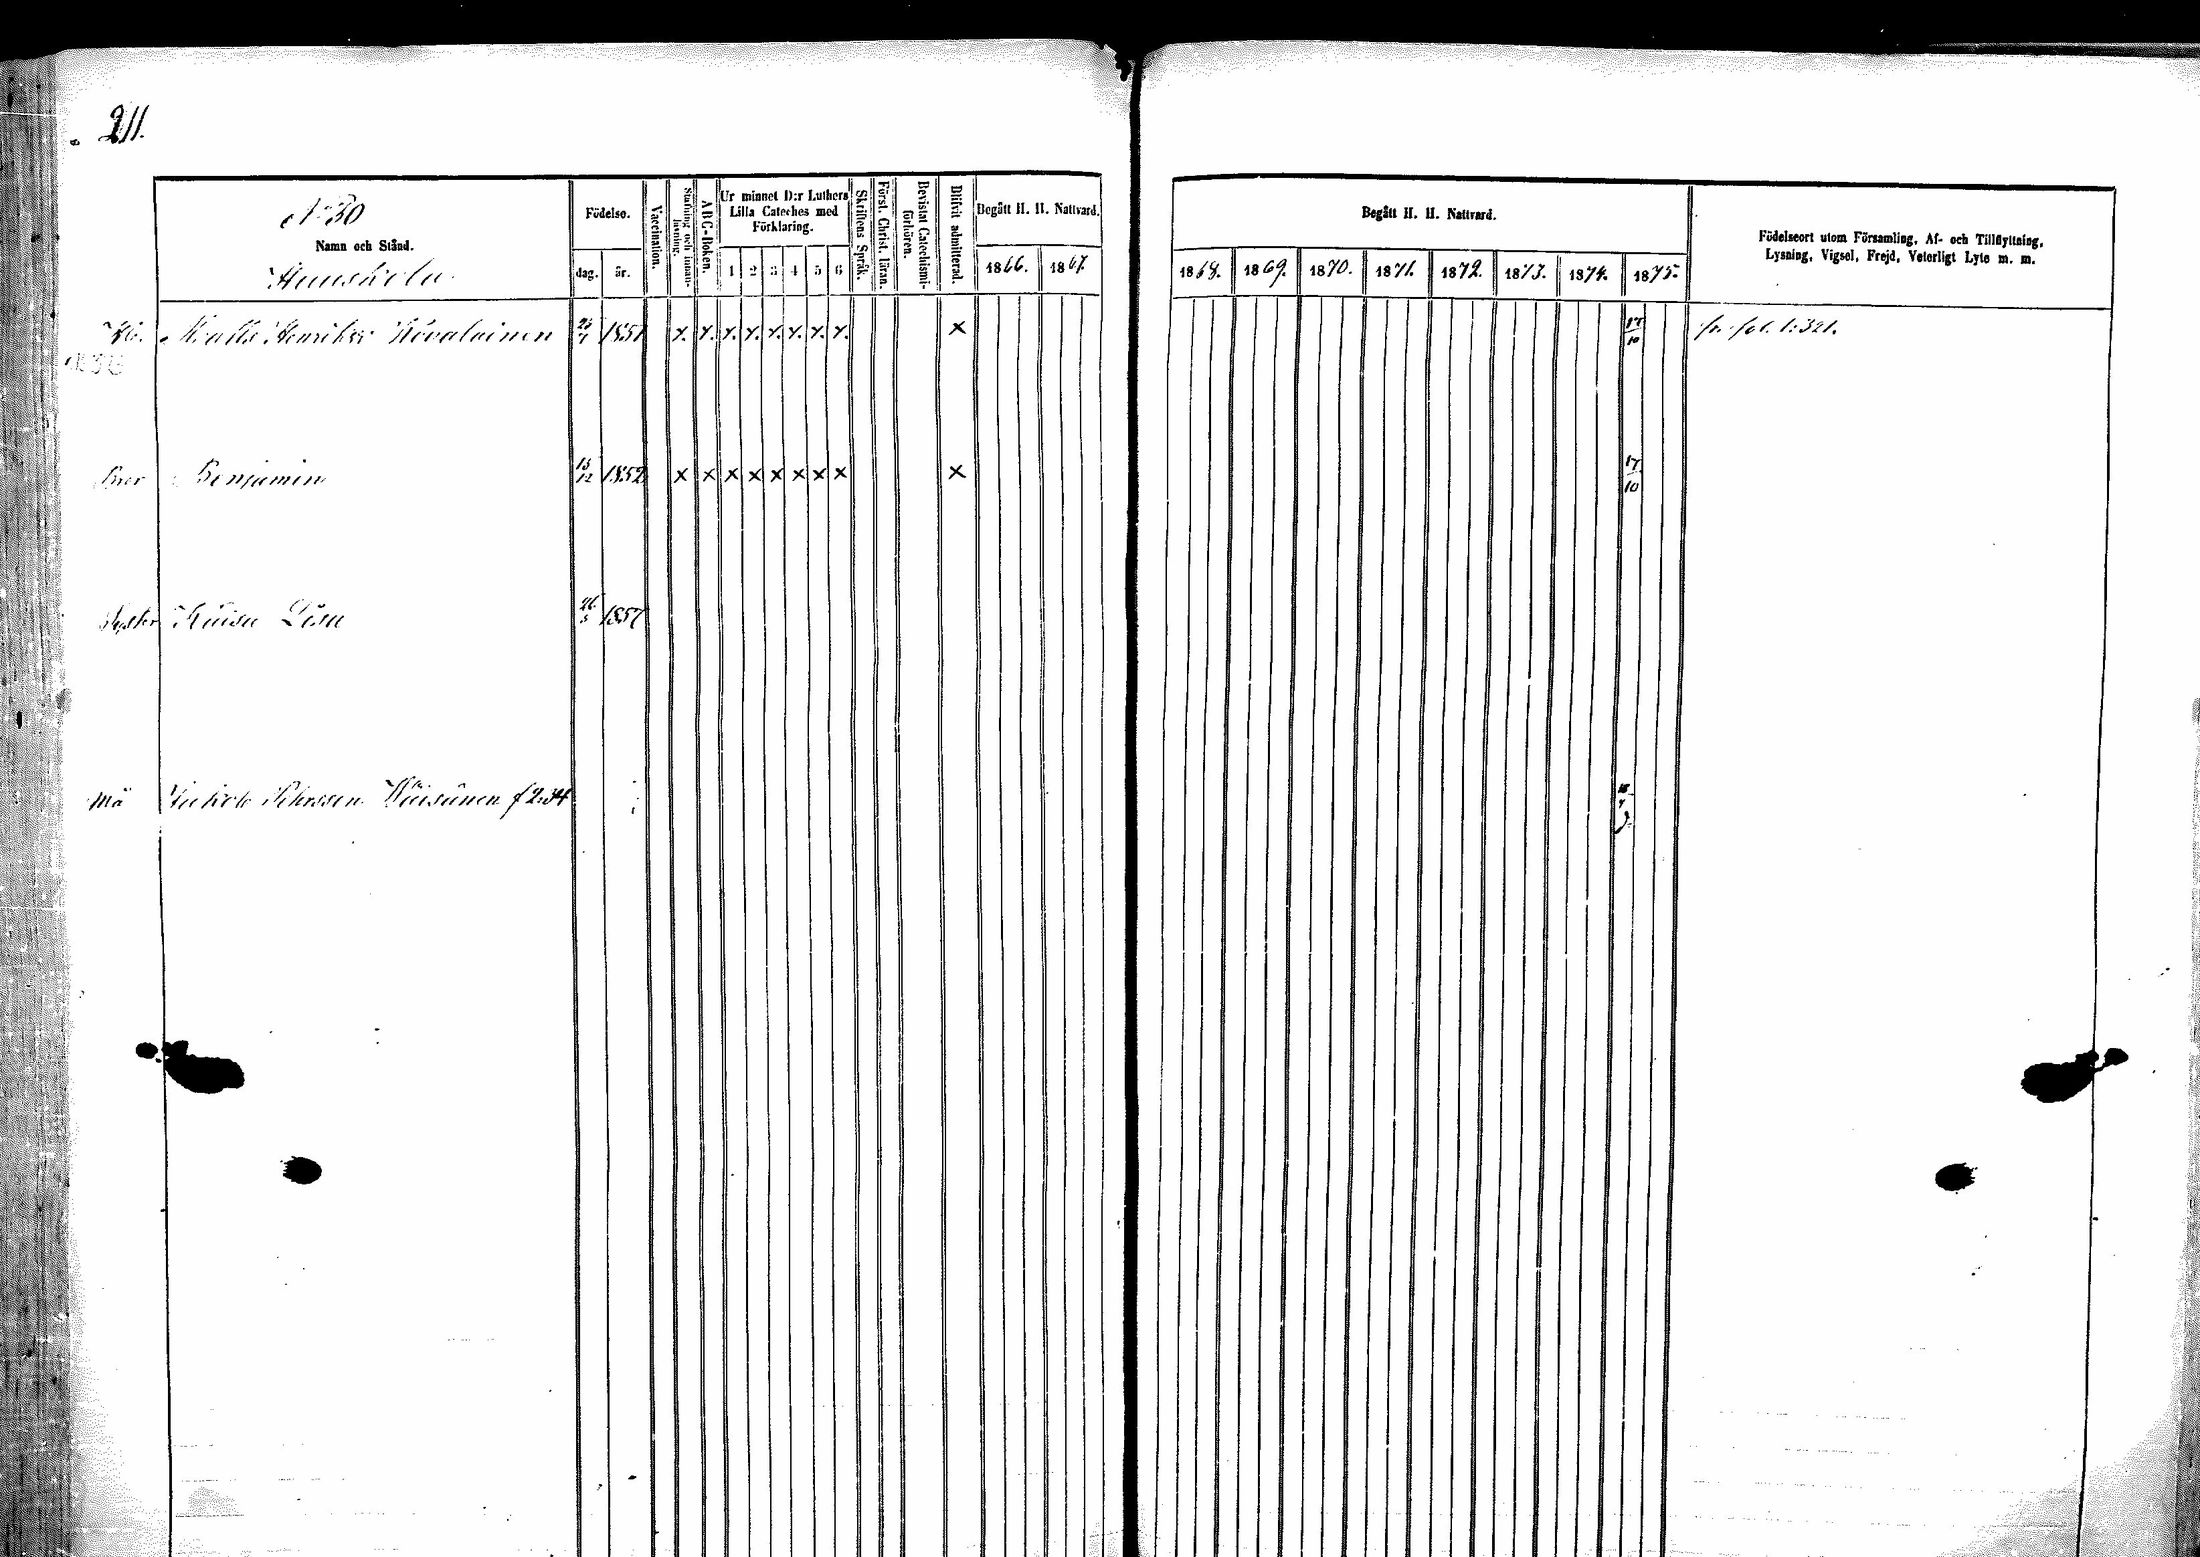 211.
№ 30
Namn och Stånd.
Födelse.
dag. år.
Vaccination.
Stafning och innan-läsning.
ABC-Boken.
Ur minnet D:r Luthers
Lilla Cateches med
Förklaring.
1 2 3 4 5 6
Skriftens Språk.
Först. Christ. läran.
Bevistat Catechismi-förhören.
Blifvit admitterad.
Begått H. H. Nattvard.
1866. 1867.
Begått H. H. Nattvard.
1868. 1869. 1870. 1871. 1872. 1873. 1874. 1875.
Födelseort utom Församling, Af- och Tillflyttning,
Lysning, Vigsel, Frejd, Veterligt Lyte m. m.
Henriksr Kovalainen 1851 x. x. x. x. x. x. x. x. x 17/10 fr. fol. 1:321.
Bror Benjamin 13/12 1852 x x x x x x x x x 17/10
Syster Kaisa Lisa 26/5 1857
Må f 2:34